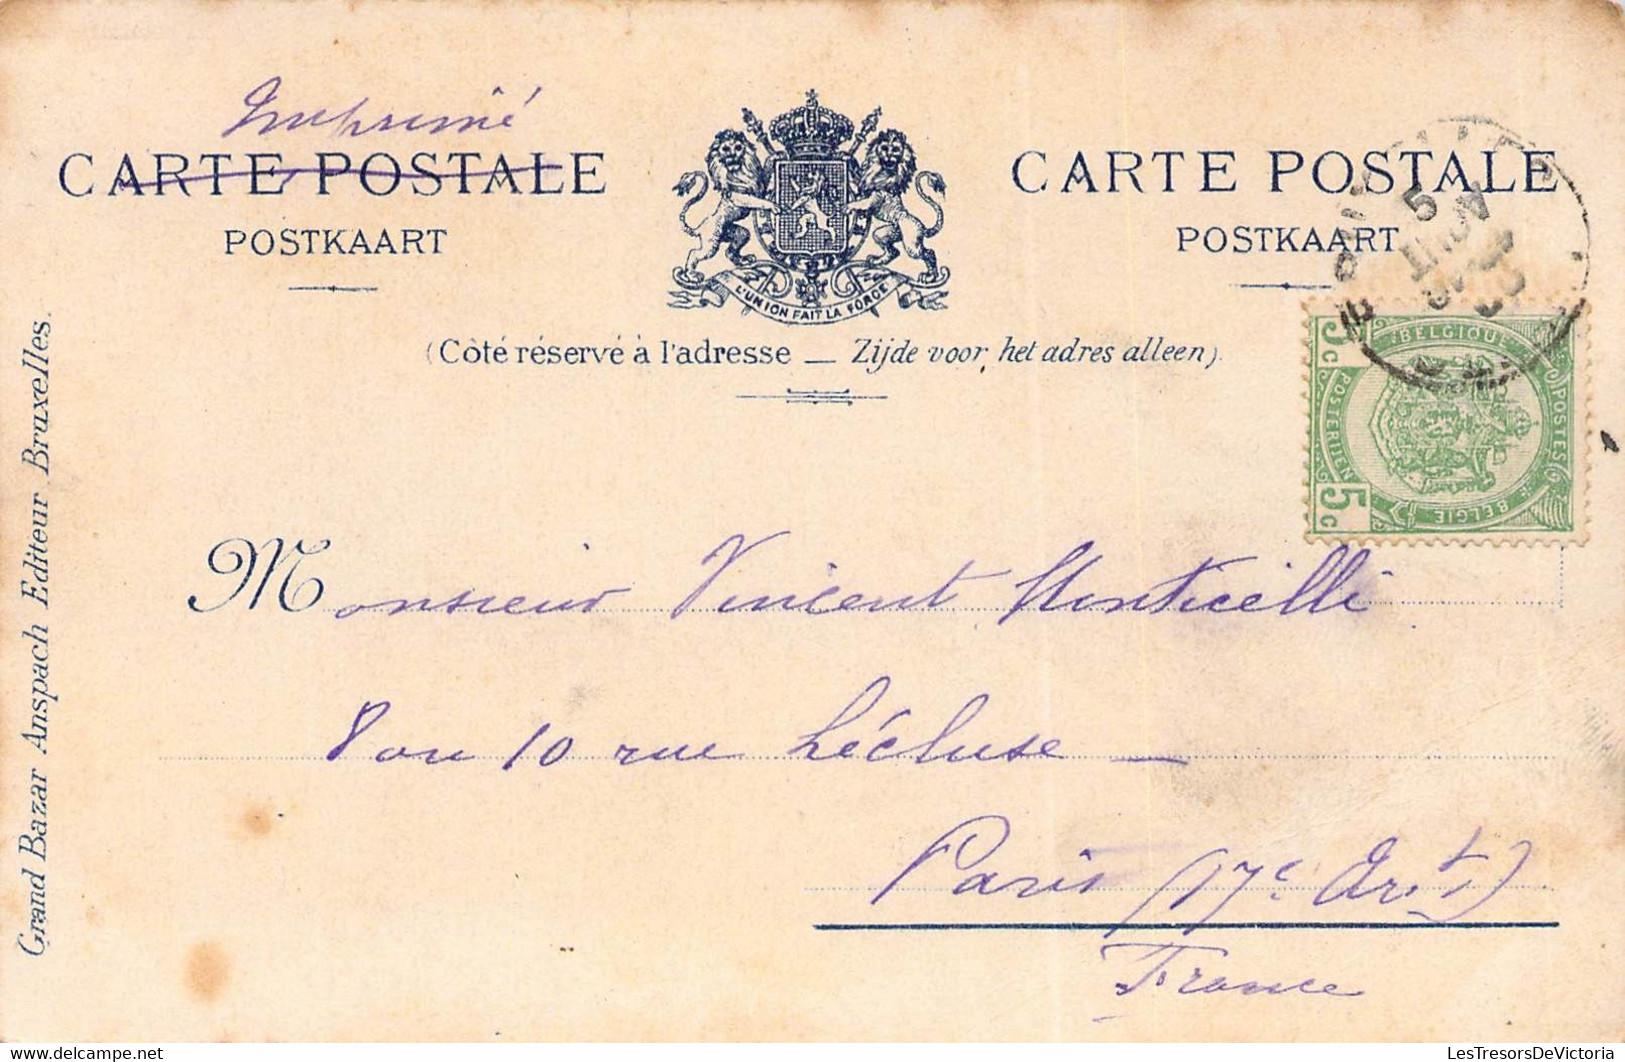 Imprimé
CARTE POSTALE
POSTKAART
L'UNION FAIT LA FORCE
CARTE POSTALE
POSTKAART
(Côté réservé à l'adresse — Zijde voor het adres alleen).
5
AOUT
BELGIQUE
5c
POSTES
POSTERIJEN
5c
BELGIE
Grand Bazar Anspach Editeur Bruxelles.
Monsieur Vincent Monticelli
8 ou 10 rue Lécluse —
Paris (17e Arrt)
France
LesTresorsDeVictoria